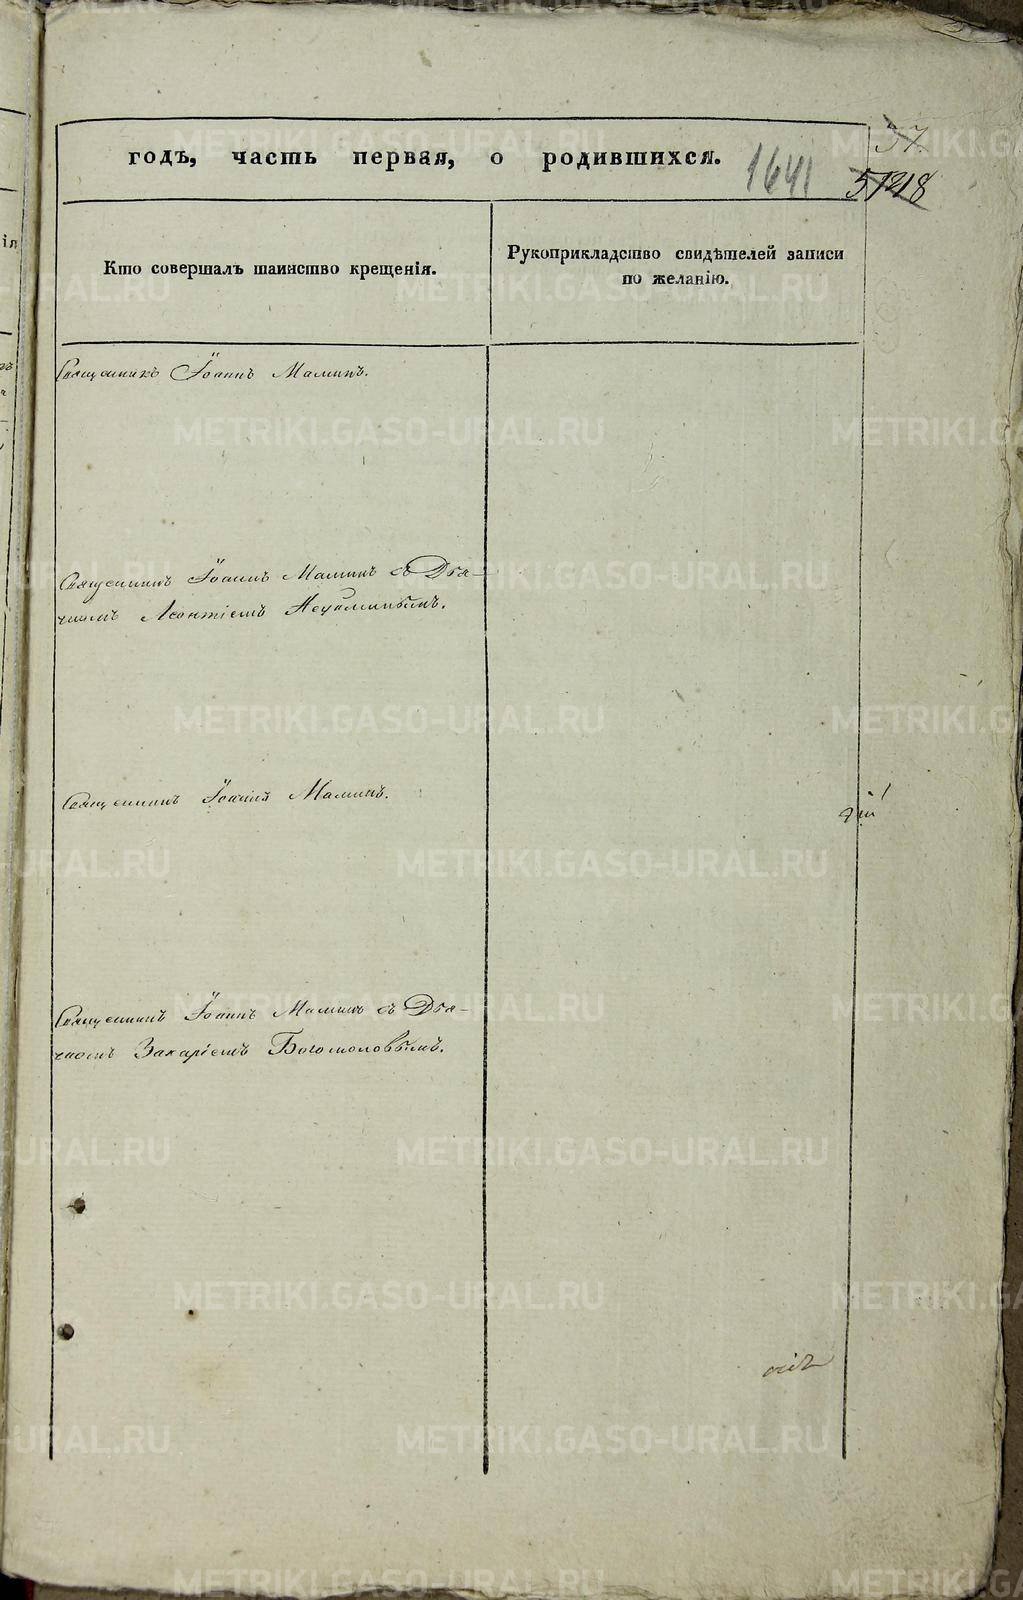 годъ, часть первая, о родившихся.
1641
37.
51218
Кто совершалъ таинство крещенія.
Рукоприкладство свидѣтелей записи
по желанію.
Священникъ Іоаннъ Малинъ.
Священникъ Іоаннъ Малинъ съ Дья-
чкомъ Леонтіемъ
Священникъ Іоаннъ Малинъ.
Священникъ Іоаннъ Малинъ съ Дья-
чкомъ Захаріемъ Богомоловымъ.
METRIKI.GASO-URAL.RU